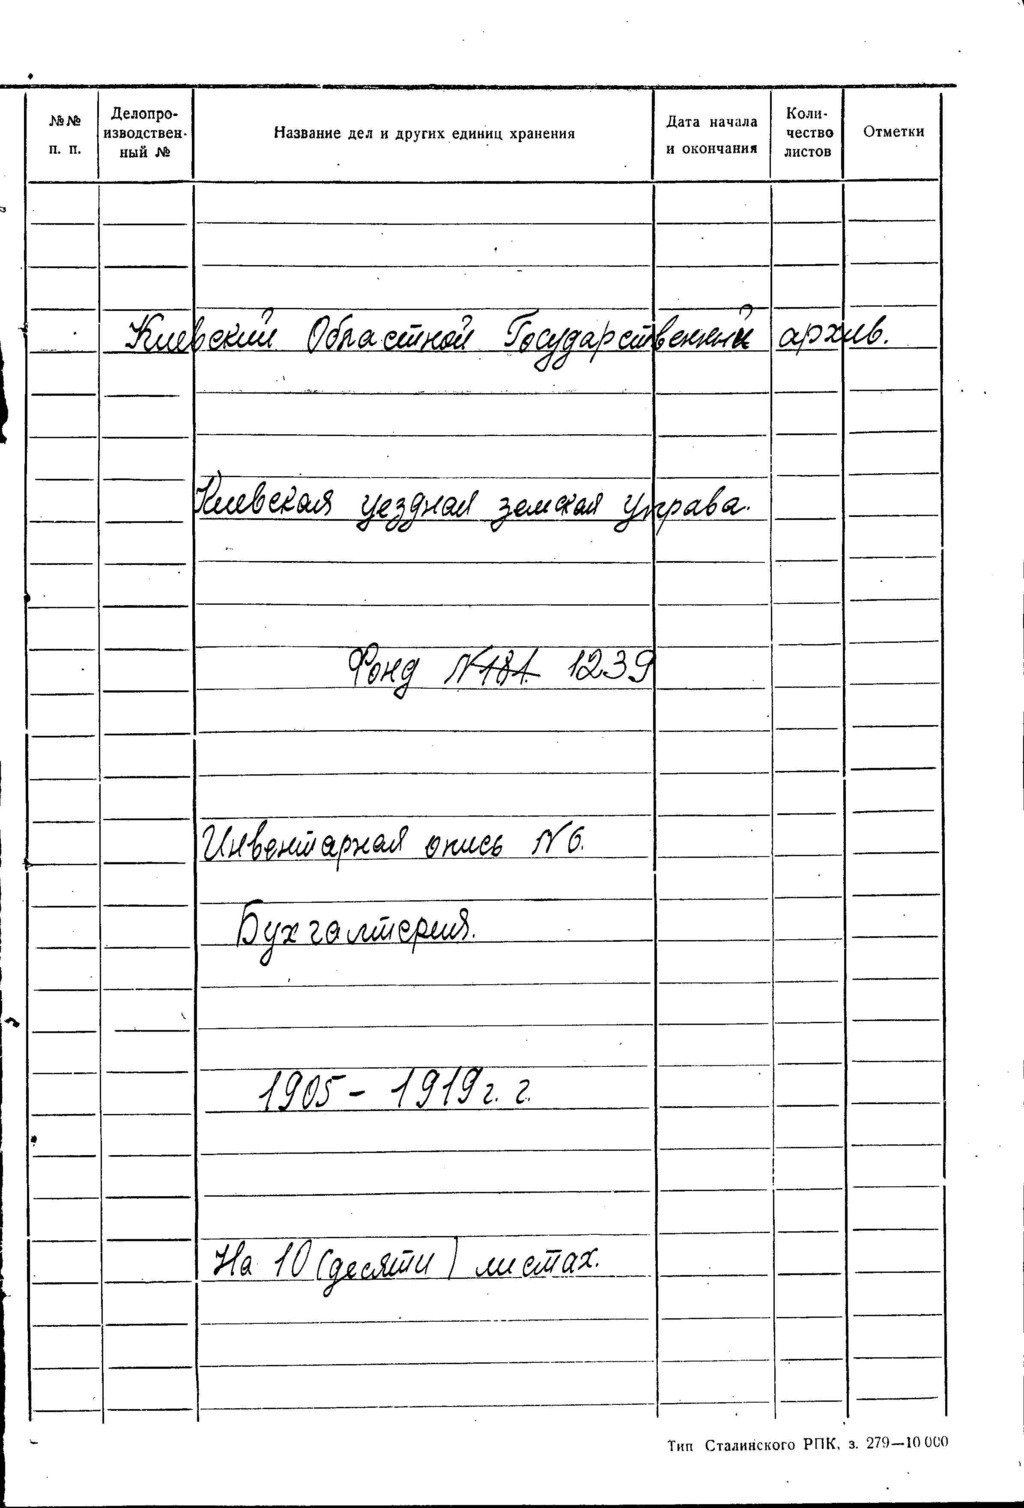 №№ п. п. Делопроизводственный № Название дел и других единиц хранения Дата начала и окончания Количество листов Отметки
Киевский Областной Государственный архив.
Киевская уездная земская Управа.
Фонд №181. 1239
Инвентарная опись №6.
Бухгалтерия.
1905 - 1919 г. г.
На 10 (десяти) листах.
Тип Сталинского РПК, з. 279—10 000